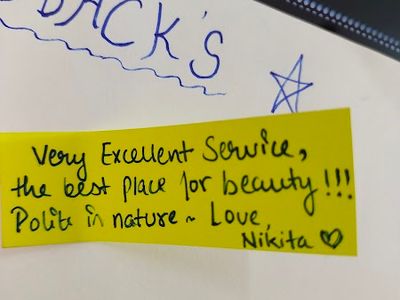 BACK'S
Very Excellent Service,
the best place for beauty!!!
Polite in nature ~ Love,
Nikita ♡